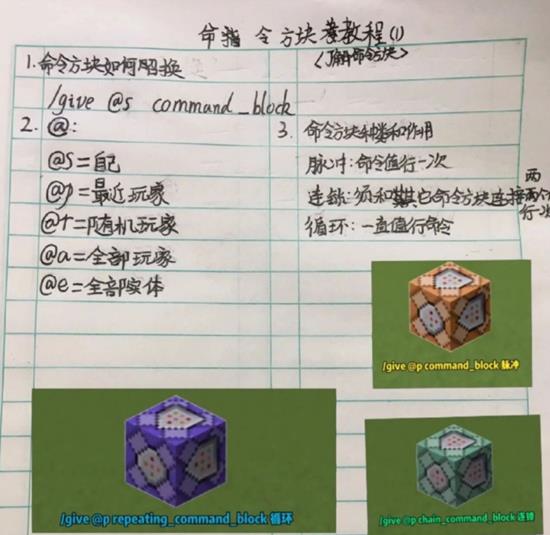 命令方块教程(1)
<了解命令方块>
1.命令方块如何召换
/give @s command_block
2. @:
@s=自己
@p=最近玩家
@r=随机玩家
@a=全部玩家
@e=全部实体
3. 命令方块种类和作用
脉冲:命令值行一次
连锁:须和其它命令方块连接两个
行一次
循环:一直值行命令
/give @p command_block 脉冲
/give @p repeating_command_block 循环
/give @p chain_command_block 连锁